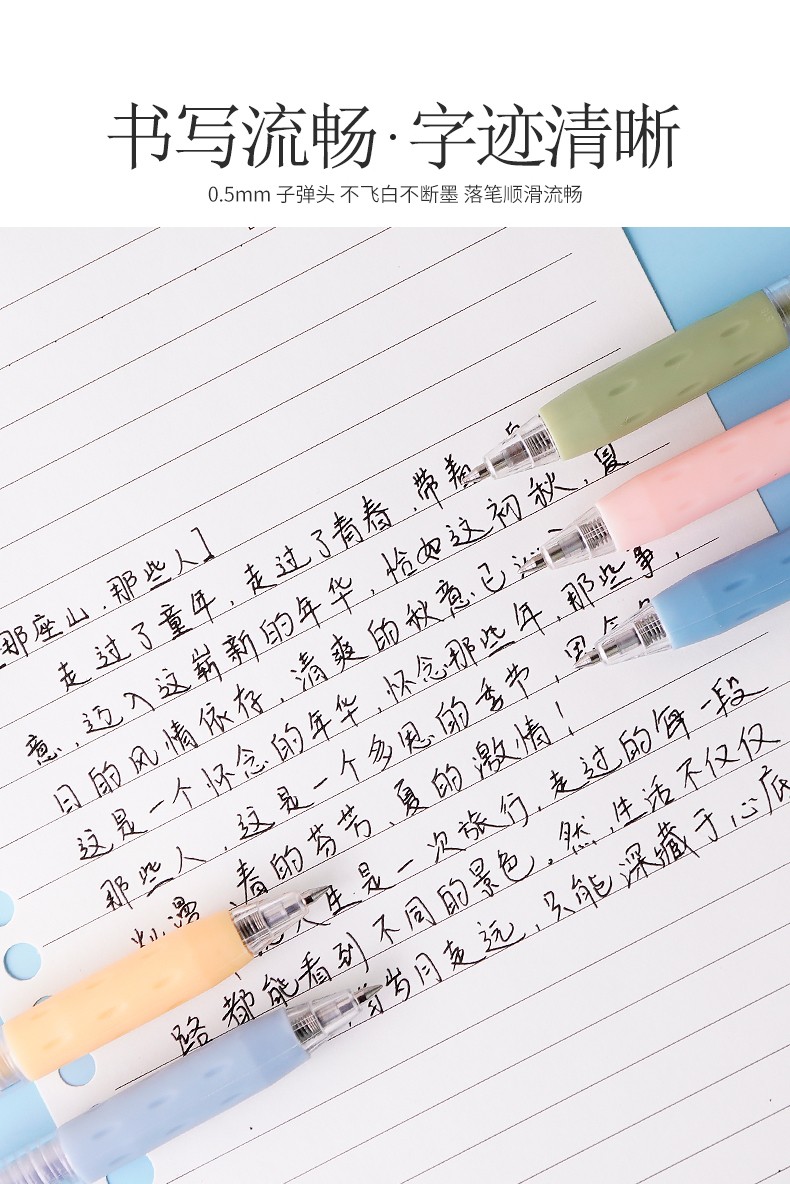 书写流畅·字迹清晰
0.5mm 子弹头 不飞白不断墨 落笔顺滑流畅
那座山,那些人】
走过了童年,走过了青春,带着
意,迈入这崭新的年华,恰如这初秋,夏
日的风情依存,清爽的秋意已
这是一个怀念的年华,怀念那些年,那些事,
那些人,这是一个多思的季节,思念
烂漫,春的芬芳,夏的激情!
人生是一次旅行,走过的每一段
路都能看到不同的景色,然,生活不仅仅
岁月走远,只能深藏于心底